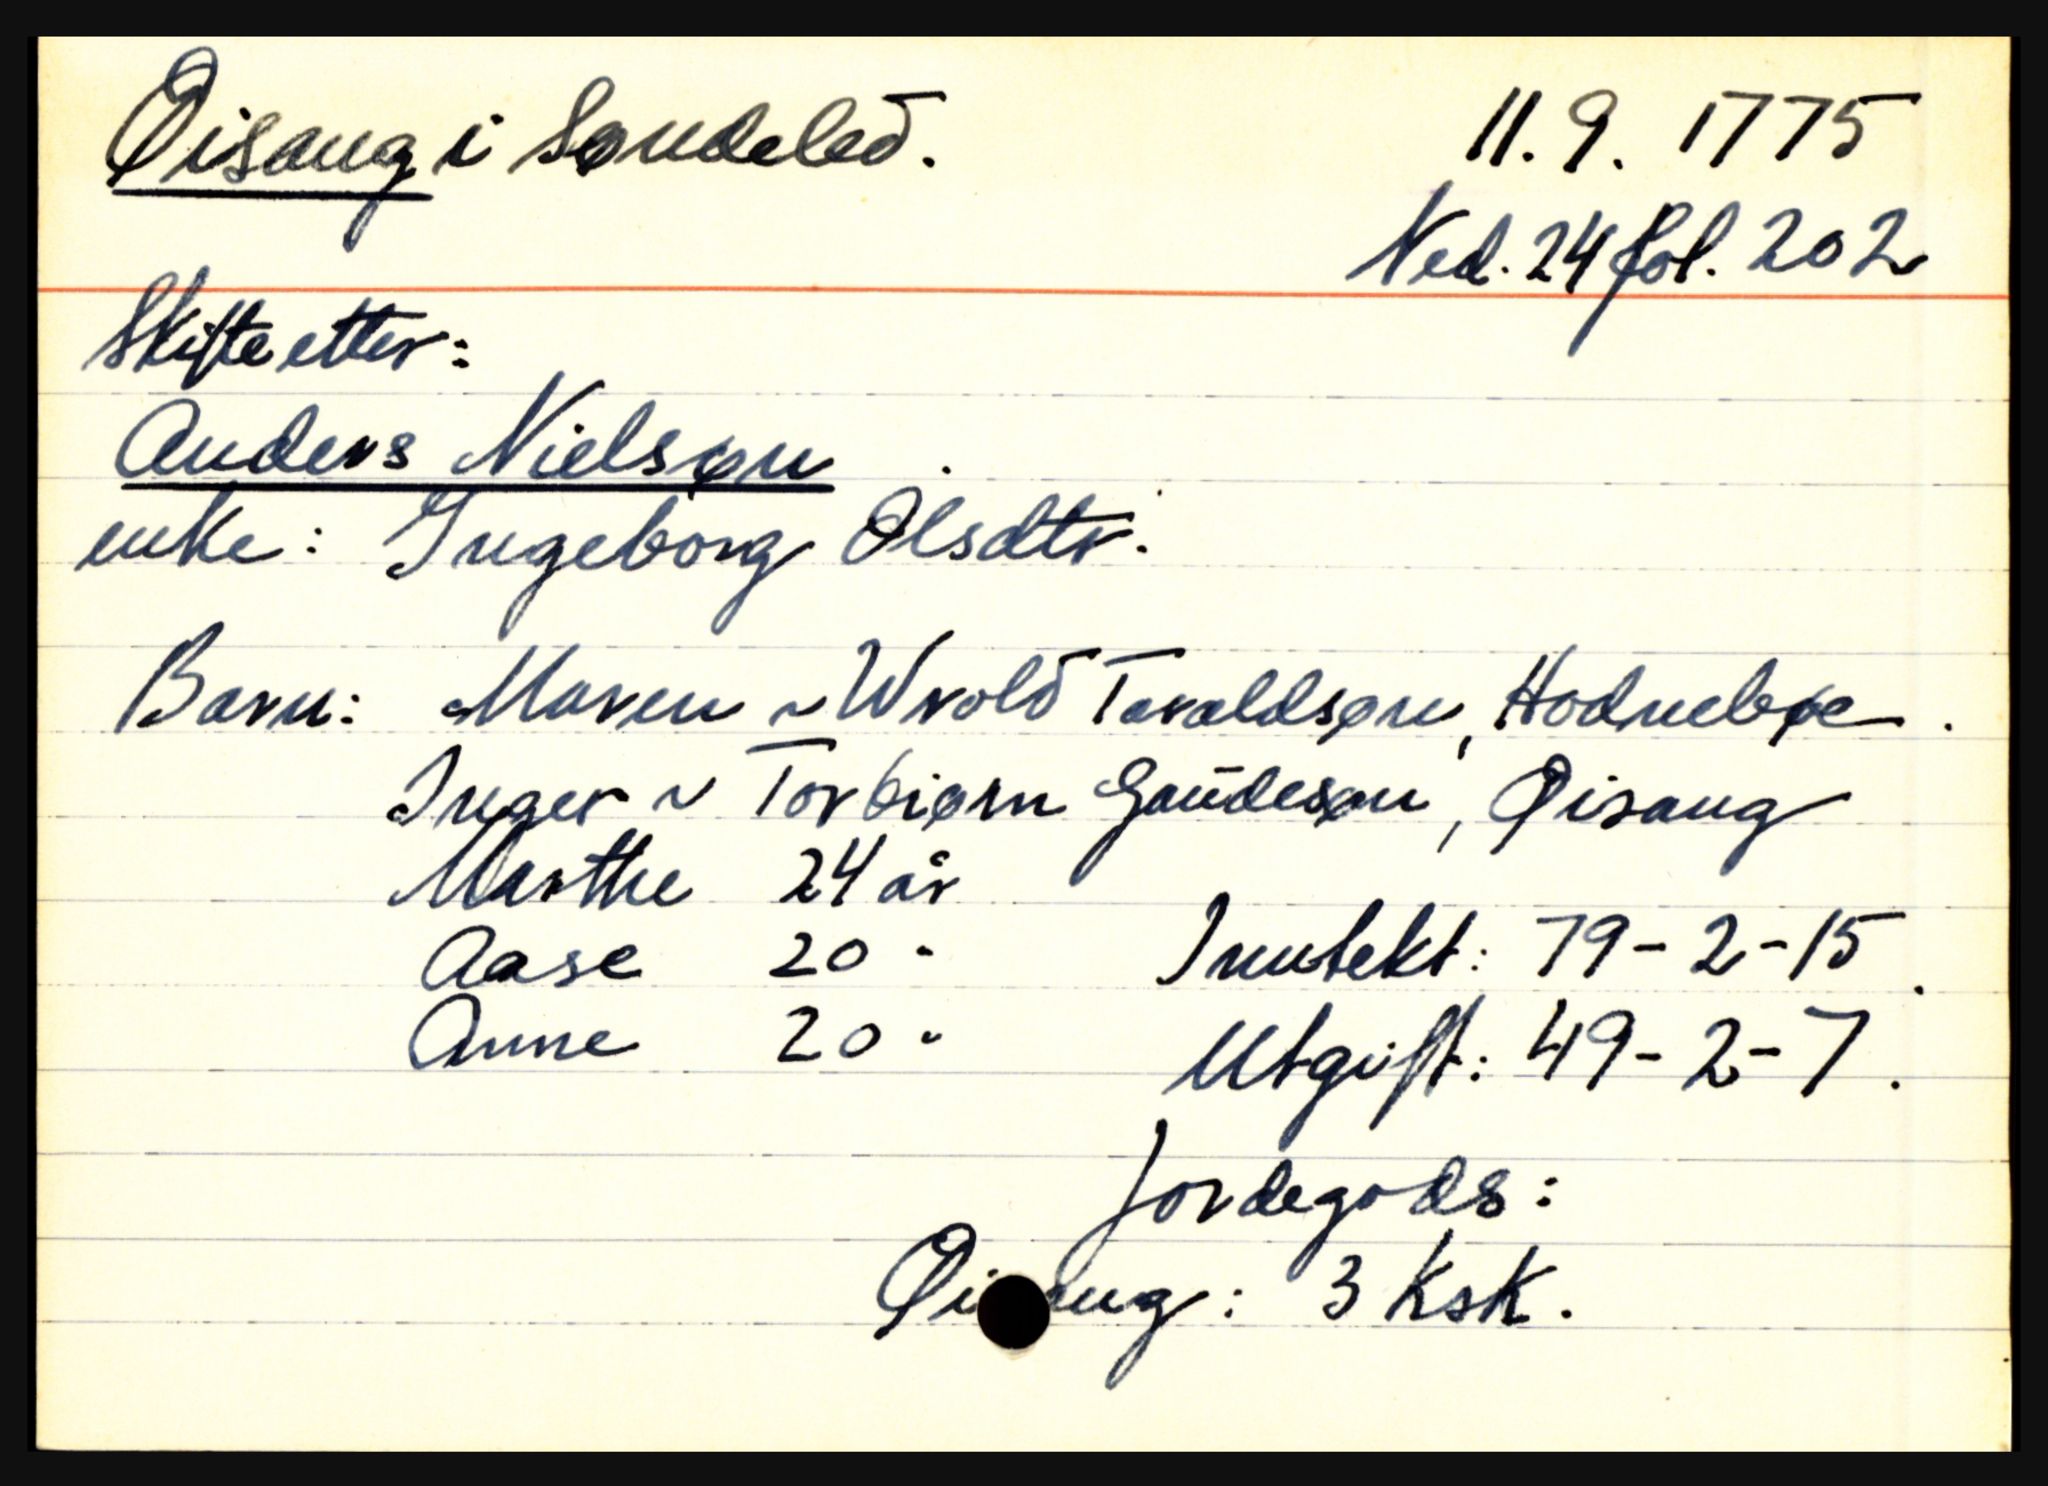 Øisang i Søndeled.
11.9. 1775
Ned. 24 fol. 202
Skifte etter:
Anders Nielsøn
enke: Ingeborg Olsdtr.
Barn: Maren ~ Wrold Taraldsøn, Hodnebøe.
Inger ~ Torbiørn Gaŭdesøn, Øisang
Marthe 24 år
Aase 20 "
Anne 20 "
Inntekt: 79-2-15.
Utgift: 49-2-7.
Jordegods:
Øisang: 3 Ksk.